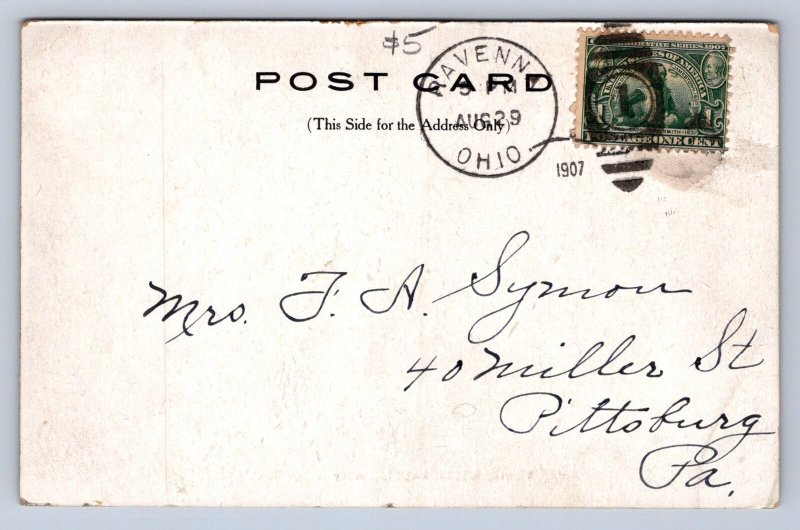 $5
POST CARD
(This Side for the Address Only)
RAVENNA
5 PM
AUG 29
OHIO.
1907
COMMEMORATIVE SERIES, 1907
UNITED STATES OF AMERICA
1
POSTAGE ONE CENT
Mrs. F. A. Symon
40 Miller St
Pittsburg
Pa.